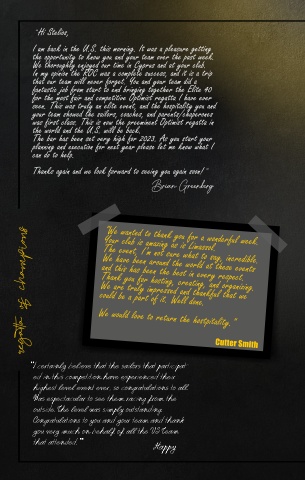 "Hi Stelios,
I am back in the U.S. this morning. It was a pleasure getting
the opportunity to know you and your team over the past week.
We thoroughly enjoyed our time in Cyprus and at your club.
In my opinion the ROC was a complete success, and it is a trip
that our team will never forget. You and your team did a
fantastic job from start to end bringing together the Elite 40
for the most fair and competitive Optimist regatta I have ever
seen. This was truly an elite event, and the hospitality you and
your team showed the sailors, coaches, and parents/chaperones
was first class. This is now the preeminent Optimist regatta in
the world and the U.S. will be back.
The bar has been set very high for 2023. As you start your
planning and executive for next year please let me know what I
can do to help.
Thanks again and we look forward to seeing you again soon!"
Brian Greenberg
"We wanted to thank you for a wonderful week.
Your club is amazing as is Limassol.
The event, I'm not sure what to say, incredible.
We have been around the world at these events
and this has been the best in every respect.
Thank you for hosting, creating, and organising.
We are truly impressed and thankful that we
could be a part of it. Well done.
We would love to return the hospitality."
Cutter Smith
regatta of champions
"I certainly believe that the sailors that particpat
ed in this competition have experienced their
highest level event ever, so congratulations to all.
Was espectacular to see them racing from the
outside. The level was simply outstanding.
Congratulations to you and your team and thank
you very much on behalf of all the VB Team
that attended."
Happy